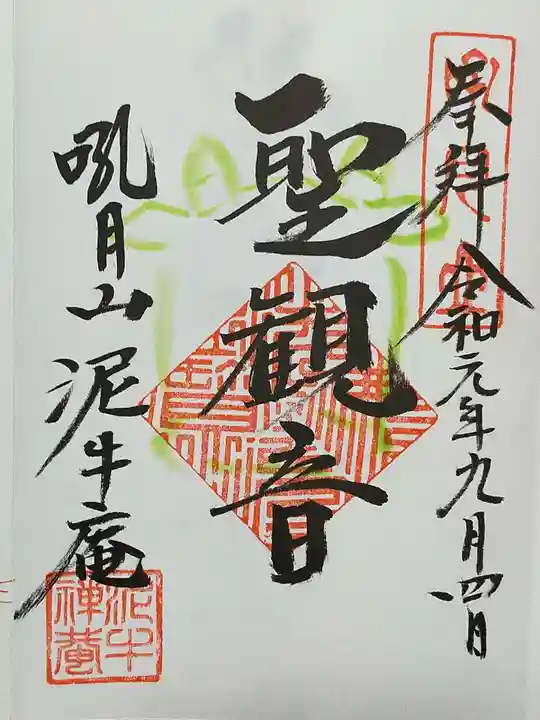 奉拝 令和元年九月四日
聖観音
吼月山泥牛庵
泥牛禅菴